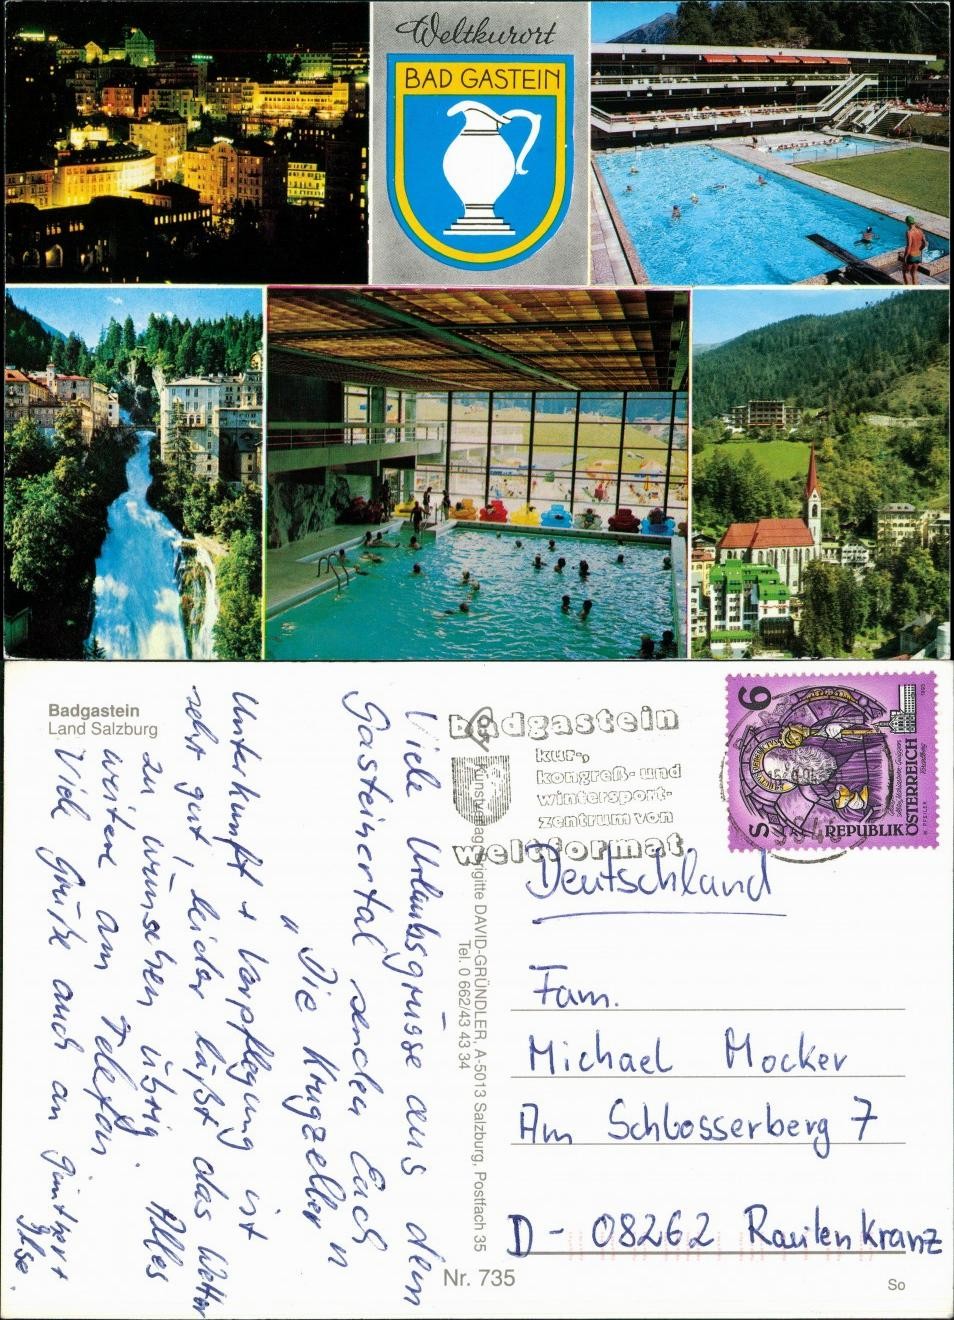 Weltkurort
BAD GASTEIN
Badgastein
Land Salzburg
Viele Urlaubsgrüsse aus dem
Gasteinertal senden Euch
"Die Krugzeller"
Unterkunft + Verpflegung ist
sehr gut, leider läßt das Wetter
zu wünschen übrig. Alles
weitere am Telefon.
Viele Grüße auch an
badgastein
kur-,
kongreß- und
wintersport-
zentrum von
weltformat
Kunstverlag Brigitte DAVID-GRÜNDLER, A-5013 Salzburg, Postfach 35
Tel. 0 662/43 43 34
S 6
REPUBLIK ÖSTERREICH
Deutschland
Fam.
Michael Mocker
Am Schlosserberg 7
D - 08262 Rautenkranz
Nr. 735
So